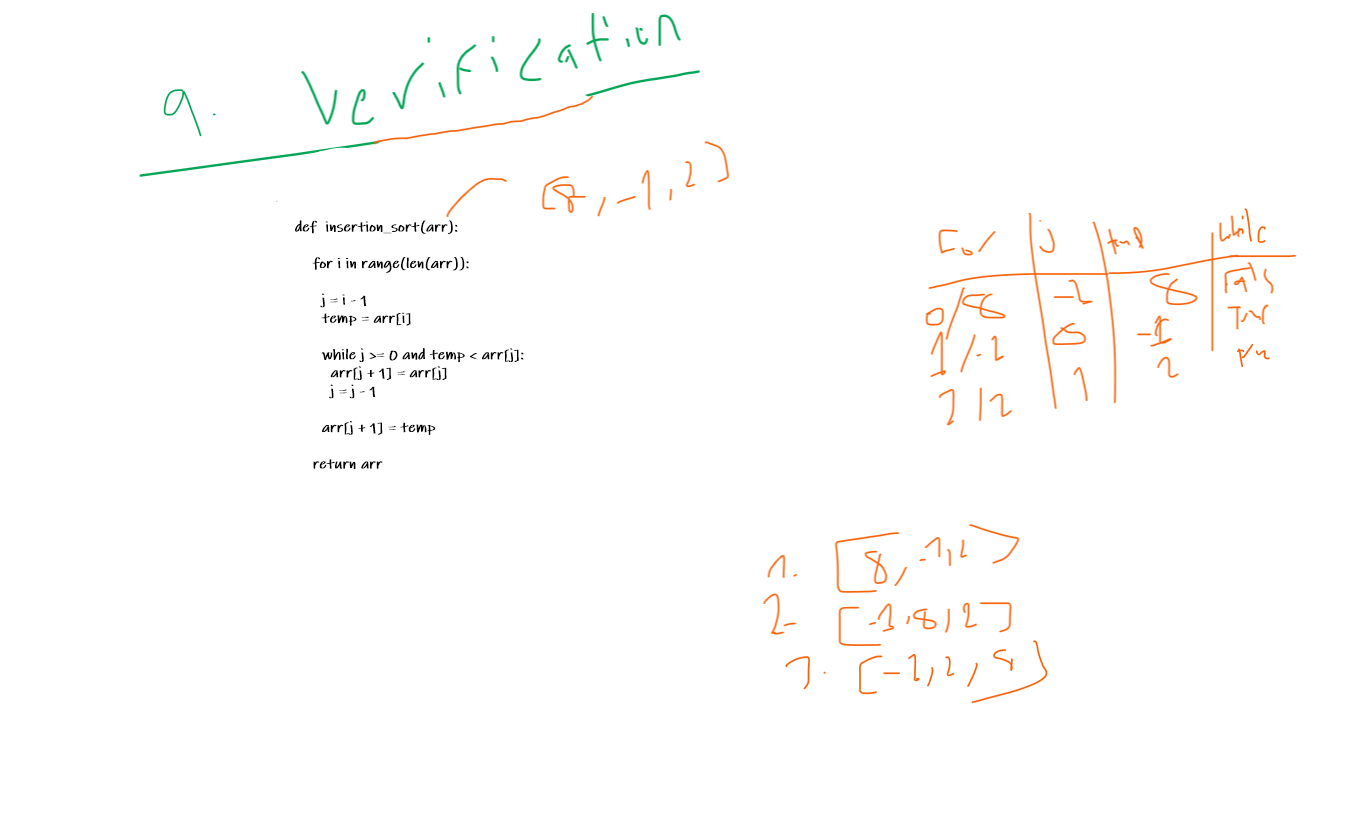 9. Verification
[8, -1, 2]
def insertion_sort(arr):
for i in range(len(arr)):
j = i - 1
temp = arr[i]
while j >= 0 and temp < arr[j]:
arr[j + 1] = arr[j]
j = j - 1
arr[j + 1] = temp
return arr
j
0/8 -1 8
1/-1 0 -1
2/2 1 2
1. [8, -1, 2]
2. [-1, 8, 2]
3. [-1, 2, 8]